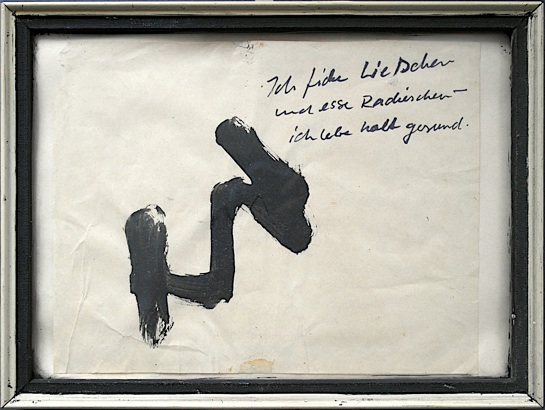 Ich ficke Lieschen
und esse Radieschen –
ich lebe halt gesund.